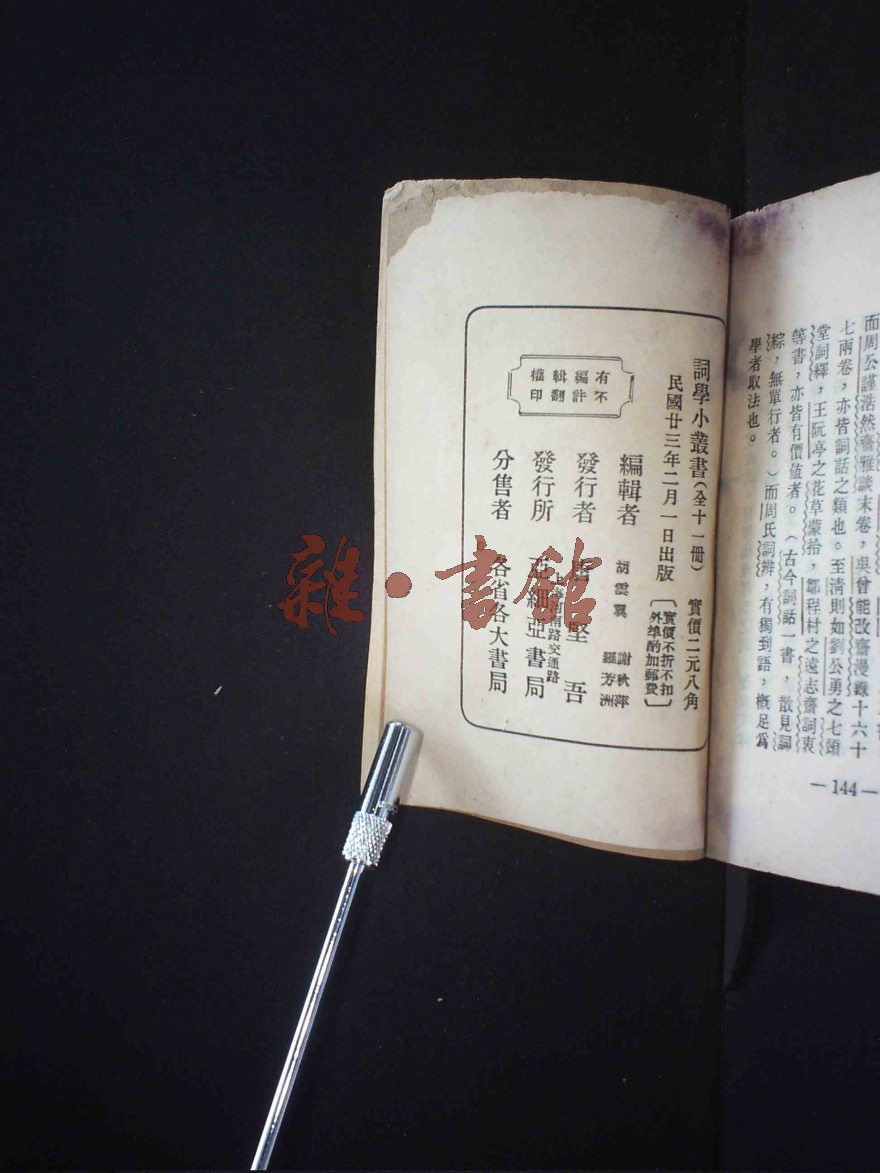 而周公謹浩然齋雅談末卷，吳曾能改齋漫錄十六十
七兩卷，亦皆詞話之類也。至清則如劉公勇之七頭
堂詞釋，王阮亭之花草蒙拾，鄒程村之遠志齋詞衷
等書，亦皆有價值者。（古今詞話一書，散見詞
綜，無單行者。）而周氏詞辨，有獨到語，概足爲
學者取法也。
—144—
詞學小叢書（全十一冊）　實價二元八角
〔實價不折不扣
外埠酌加郵費〕
民國廿三年二月一日出版
編輯者　胡雲翼　謝秋萍　羅芳洲
發行者　堅吾
發行所　亞細亞書局
河南路交通路
分售者　各省各大書局
有編輯權
不許翻印
雜·書館